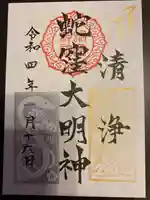 清浄
蛇窪大明神
令和四年一月十六日